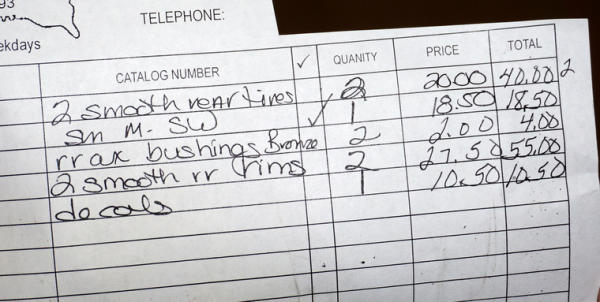 93
TELEPHONE:
ekdays
CATALOG NUMBER ✓ QUANITY PRICE TOTAL
2 smooth rear tires 2 2000 40.00 2
sm M. SW ✓ 1 18.50 18.50
rr ax bushings Bronze 2 2.00 4.00
2 smooth rr rims 2 27.50 55.00
decals 1 10.50 10.50